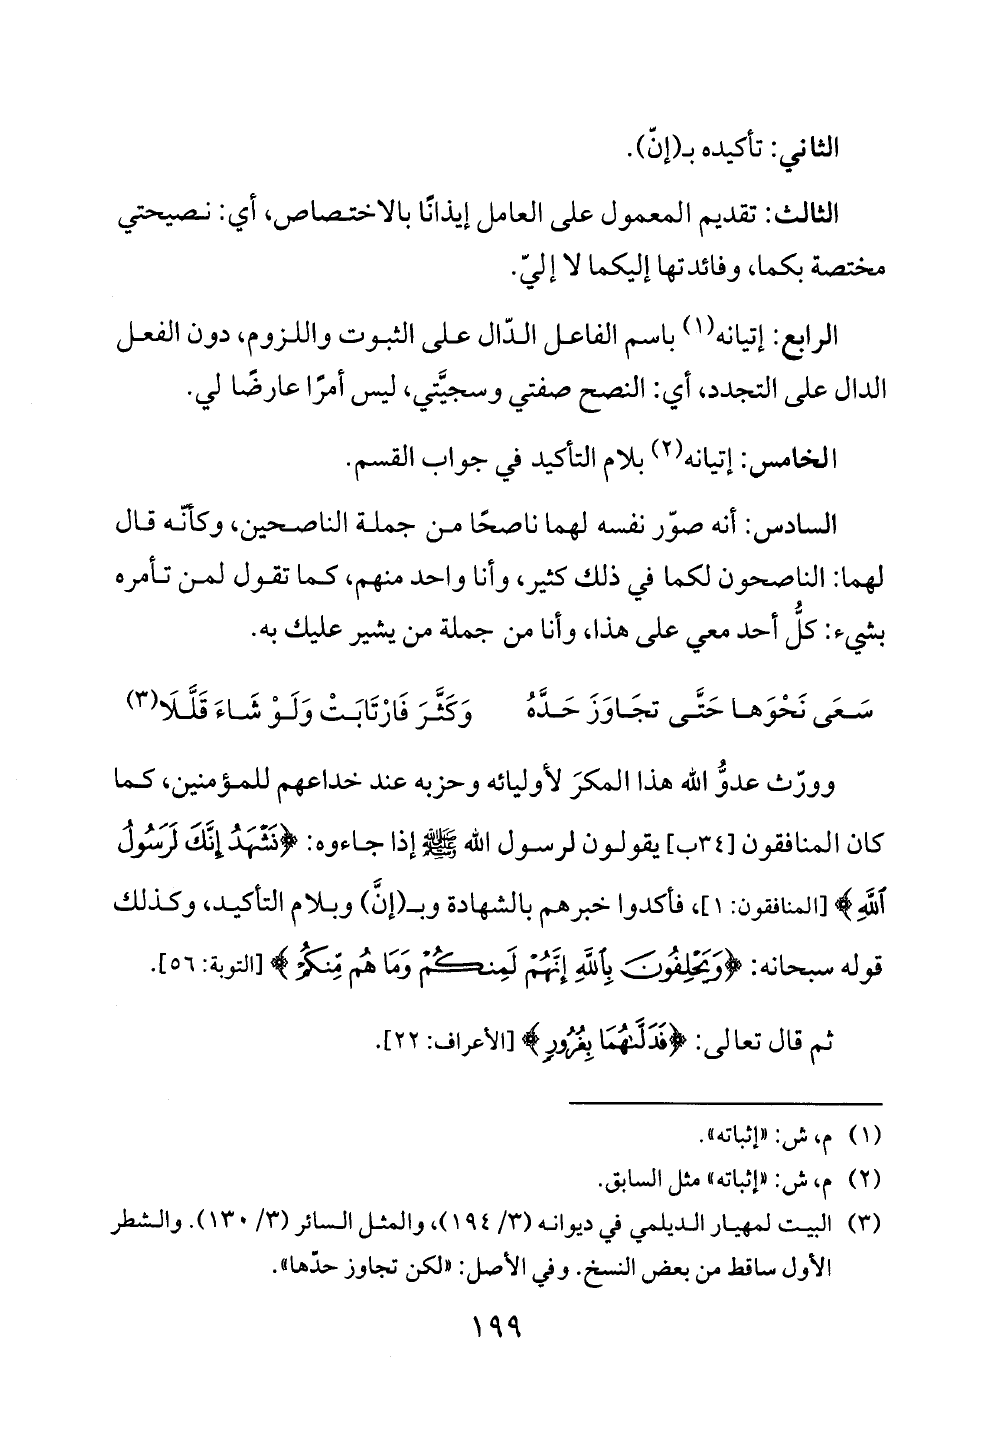 الثاني: تأكيده بـ(إنّ).
الثالث: تقديم المعمول على العامل إيذانًا بالاختصاص، أي: نصيحتي
مختصة بكما، وفائدتها إليكما لا إليّ.
الرابع: إتيانه(١) باسم الفاعل الدّال على الثبوت واللزوم، دون الفعل
الدال على التجدد، أي: النصح صفتي وسجيَّتي، ليس أمرًا عارضًا لي.
الخامس: إتيانه(٢) بلام التأكيد في جواب القسم.
السادس: أنه صوّر نفسه لهما ناصحًا من جملة الناصحين، وكأنّه قال
لهما: الناصحون لكما في ذلك كثير، وأنا واحد منهم، كما تقول لمن تأمره
بشيء: كلُّ أحد معي على هذا، وأنا من جملة من يشير عليك به.
سَعَى نَحْوَهَا حَتَّى تجَاوَزَ حَدَّهُ وَكَثَّرَ فَارْتَابَتْ وَلَوْ شَاءَ قَلَّلَا(٣)
وورّث عدوُّ الله هذا المكرَ لأوليائه وحزبه عند خداعهم للمؤمنين، كما
كان المنافقون [٣٤ب] يقولون لرسول الله ﷺ إذا جاءوه: ﴿نَشْهَدُ إِنَّكَ لَرَسُولُ
ٱللَّهِ﴾ [المنافقون: ١]، فأكدوا خبرهم بالشهادة وبـ(إنَّ) وبلام التأكيد، وكذلك
قوله سبحانه: ﴿وَيَحْلِفُونَ بِٱللَّهِ إِنَّهُمْ لَمِنكُمْ وَمَا هُم مِّنكُمْ﴾ [التوبة: ٥٦].
ثم قال تعالى: ﴿فَدَلَّىٰهُمَا بِغُرُورٍ﴾ [الأعراف: ٢٢].
(١) م، ش: «إثباته».
(٢) م، ش: «إثباته» مثل السابق.
(٣) البيت لمهيار الديلمي في ديوانه (٣/ ١٩٤)، والمثل السائر (٣/ ١٣٠). والشطر
الأول ساقط من بعض النسخ. وفي الأصل: «لكن تجاوز حدّها».
١٩٩